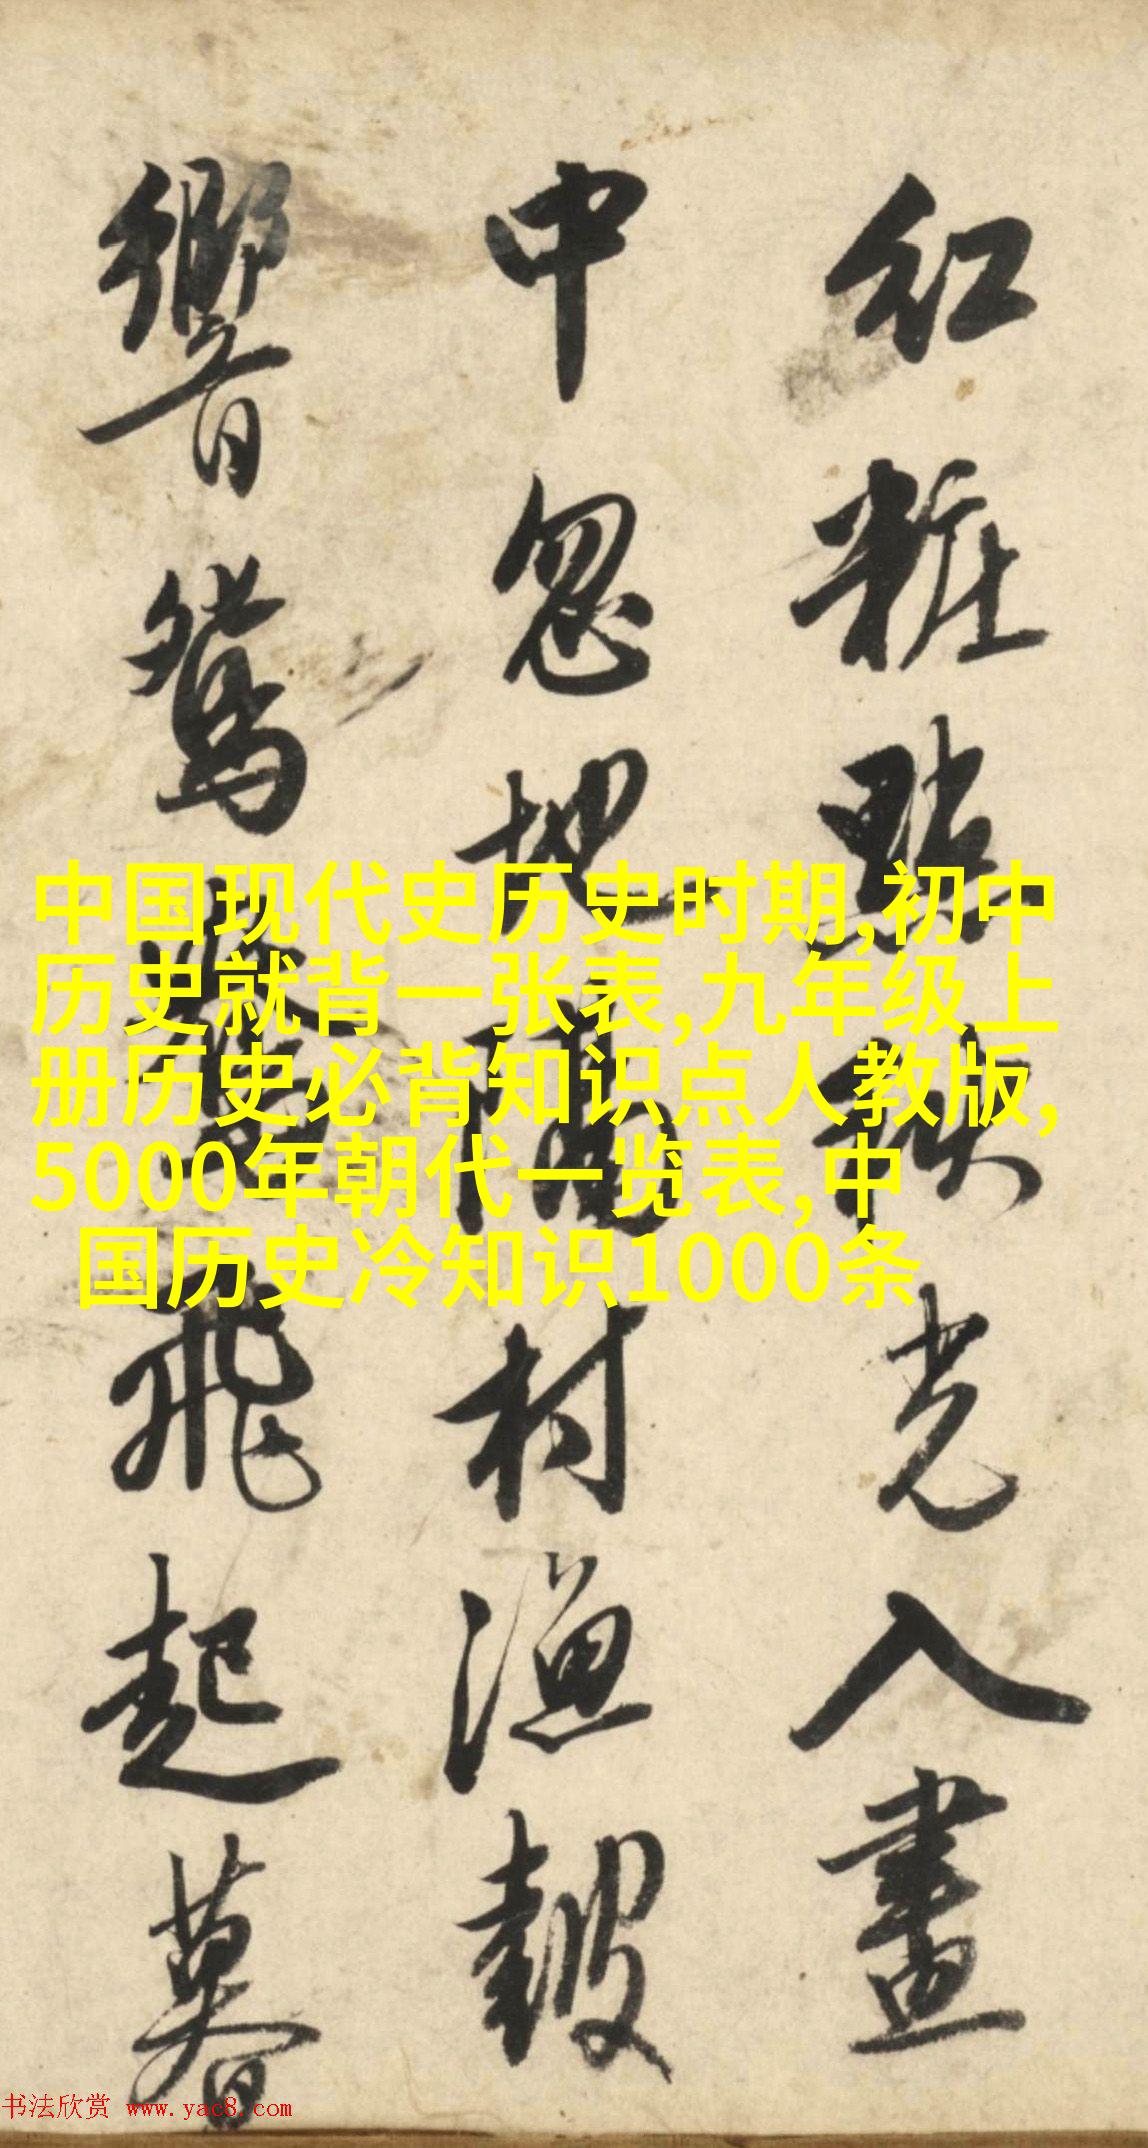 红粧點秋光入畫
中忽地隔村漁鼓
響鴛鴦驚飛起暮
中国现代史历史时期,初中
历史就背一张表,九年级上
册历史必背知识点人教版,
5000年朝代一览表,中
国历史冷知识1000条
书法欣赏 www.yac8.com